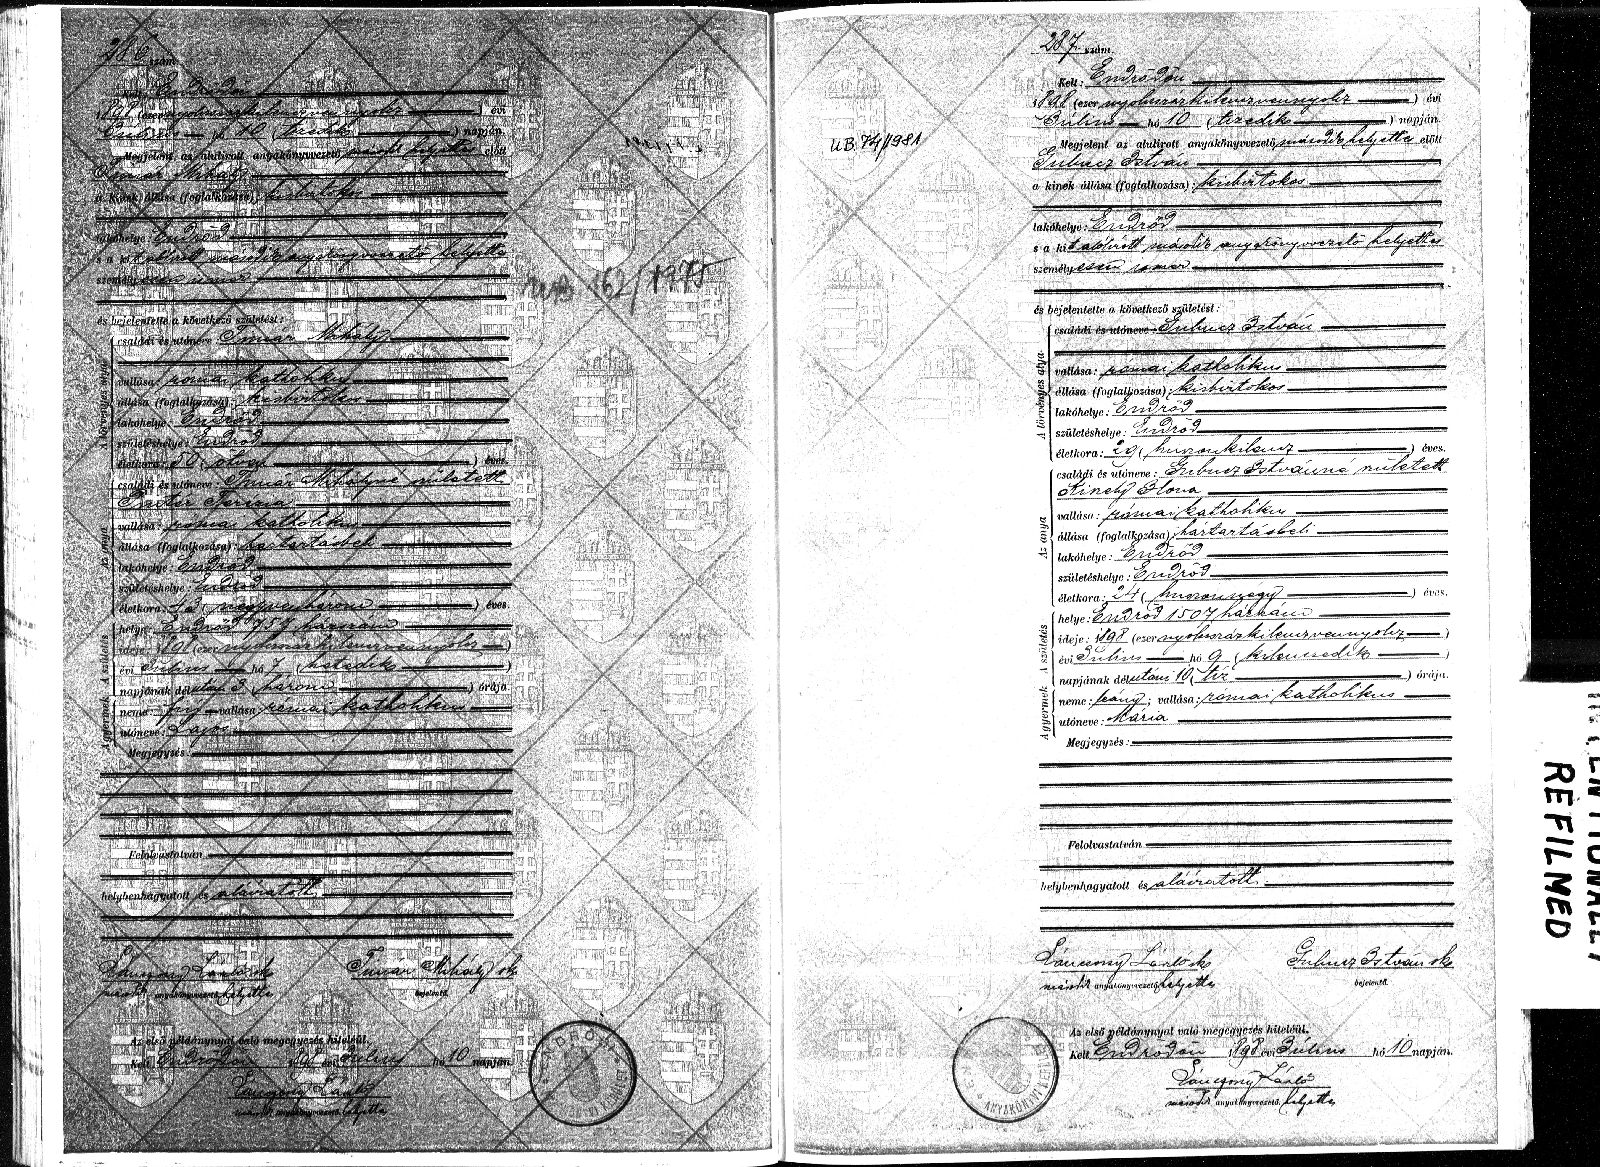 286 szám.
Kelt: Endrődön
1898 (ezernyolcszázkilenczvennyolcz) évi
Július hó 10 (tizedik) napján.
Megjelent az alulirott anyakönyvvezető másodikhelyettes előtt
Timár Mihály
a kinek állása (foglalkozása): kisbirtokos
lakóhelye: Endrőd
s a kit alúlirott második anyakönyvvezető helyettes
személyesen ismer
és bejelentette a következő születést:
A törvényes atya
családi és utóneve Timár Mihály
vallása: római katholikus
állása (foglalkozása): kisbirtokos
lakóhelye: Endrőd
születéshelye: Endrőd
életkora: 50 (ötven) éves.
Az anya
családi és utóneve: Timár Mihályné született
Terézia
vallása: római katholikus
állása (foglalkozása): háztartásbeli
lakóhelye: Endrőd
születéshelye: Endrőd
életkora: 43 (negyvenhárom) éves.
A születés
helye: Endrőd 759 házszám
ideje: 1898 (ezernyolcszázkilenczvennyolcz)
évi Július hó 7 (hetedik)
napjának délután 3 (három) órája
A gyermek
neme: fiú vallása: római katholikus
utóneve: Lajos
Megjegyzés:
Felolvastatván
helybenhagyatott és aláiratott.
László sk
Timár Mihály sk
második anyakönyvvezető helyettes
bejelentő.
Az első példánynyal való megegyezés hiteléül.
Kelt Endrődön 1898 évi Július hó 10 napján.
László
második anyakönyvvezető helyettes
UB 162/1975
287 szám.
Kelt: Endrődön
1898 (ezernyolcszázkilenczvennyolcz) évi
Július hó 10 (tizedik) napján.
UB 74/1981
Megjelent az alulirott anyakönyvvezető másodikhelyettes előtt
Gubucz István
a kinek állása (foglalkozása): kisbirtokos
lakóhelye: Endrőd
s a kit alúlirott második anyakönyvvezető helyettes
személyesen ismer
és bejelentette a következő születést:
A törvényes atya
családi és utóneve: Gubucz István
vallása: római katholikus
állása (foglalkozása): kisbirtokos
lakóhelye: Endrőd
születéshelye: Endrőd
életkora: 29 (huszonkilencz) éves.
Az anya
családi és utóneve: Gubucz Istvánné született
Kinely Ilona
vallása: római katholikus
állása (foglalkozása): háztartásbeli
lakóhelye: Endrőd
születéshelye: Endrőd
életkora: 24 (huszonnégy) éves.
A születés
helye: Endrőd 1507 házszám
ideje: 1898 (ezernyolcszázkilenczvennyolcz)
évi Július hó 9 (kilenczedik)
napjának délutáni 10 (tíz) órája.
A gyermek
neme: leány; vallása: római katholikus
utóneve: Mária
Megjegyzés:
Felolvastatván
helybenhagyatott és aláiratott.
László sk
Gubucz István sk
második anyakönyvvezető helyettes
bejelentő.
Az első példánynyal való megegyezés hiteléül.
Kelt Endrődön 1898 évi Július hó 10 napján.
László
második anyakönyvvezető helyettes
REFILMED